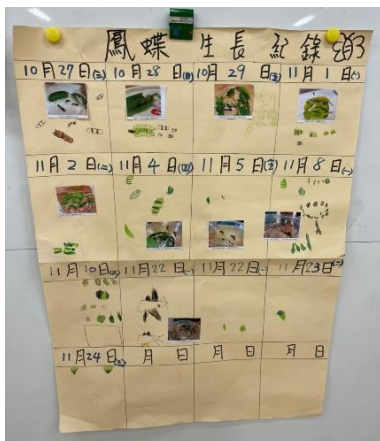 鳳蝶生長紀錄
10月27日(三) 10月28日(四) 10月29日(五) 11月1日(一)
11月2日(二) 11月4日(四) 11月5日(五) 11月8日(一)
11月10日(三) 11月22日(一) 11月22日(一) 11月23日(二)
11月24日(三) 月 日 月 日 月 日